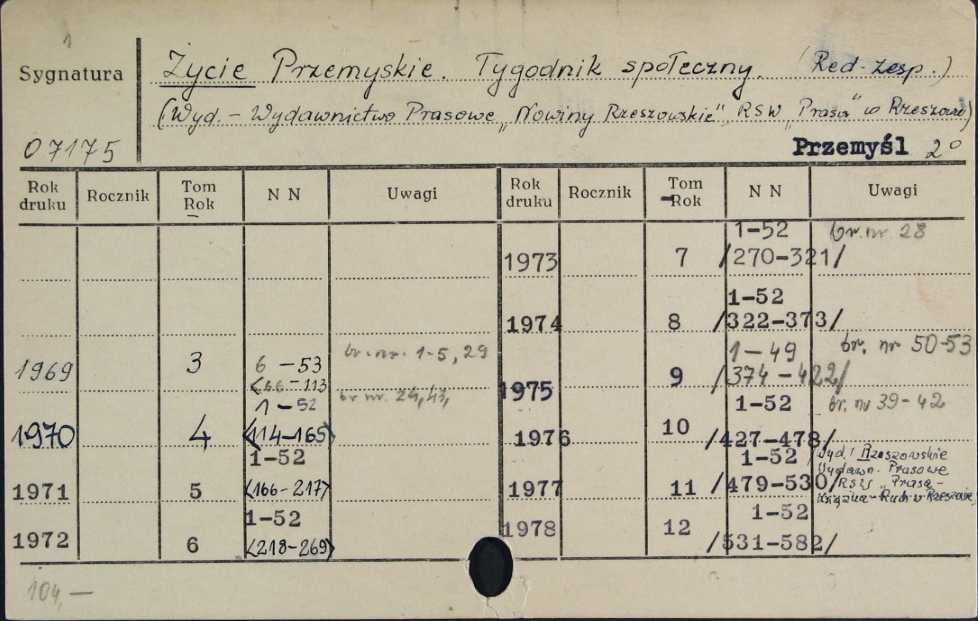 1
Sygnatura
Życie Przemyskie. Tygodnik społeczny. (Red. zesp.)
(Wyd. – Wydawnictwo Prasowe „Nowiny Rzeszowskie", RSW „Prasa" w Rzeszowie)
07175
Przemyśl 2°
Rok druku Rocznik Tom Rok N N Uwagi Rok druku Rocznik Tom Rok N N Uwagi
1973 7 1-52 /270-321/ br. nr. 28
1974 8 1-52 /322-373/
1969 3 6-53 <66-113 br. nr. 1-5, 29
1975 9 1-49 /374-422/ br. nr 50-53
1970 4 1-52 <114-165> br nr. 24, 43,
1976 10 1-52 /427-478/ br. nr 39-42
1971 5 1-52 <166-217>
1977 11 1-52 /479-530/ Wyd! Rzeszowskie Wydawn. Prasowe RSW „Prasa-Książka-Ruch w Rzeszowie
1972 6 1-52 <218-269>
1978 12 1-52 /531-582/
104,—